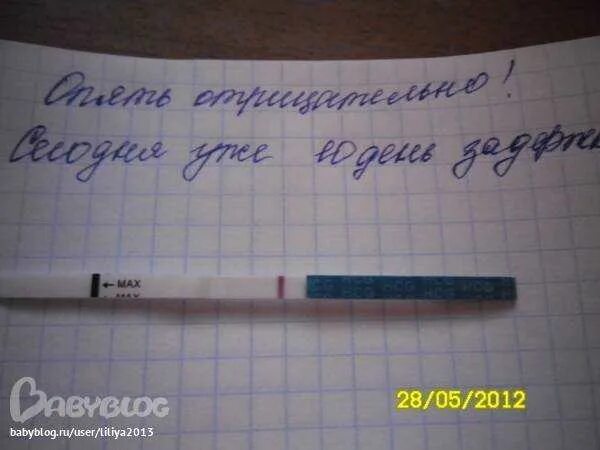 Опять отрицательно!
Сегодня уже 10 день задержк
← MAX
HCG HCG
28/05/2012
BABYBLOG
babyblog.ru/user/liliya2013